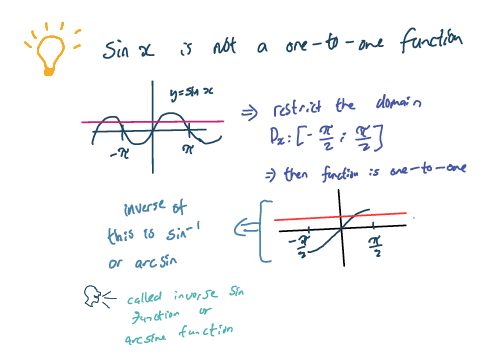 Sin x is not a one-to-one function
y=sin x
-π
π
⇒ restrict the domain
Dx: [-π/2 ; π/2]
⇒ then function is one-to-one
-π/2
π/2
inverse of
this is sin⁻¹
or arcsin
called inverse sin
function or
arcsine function